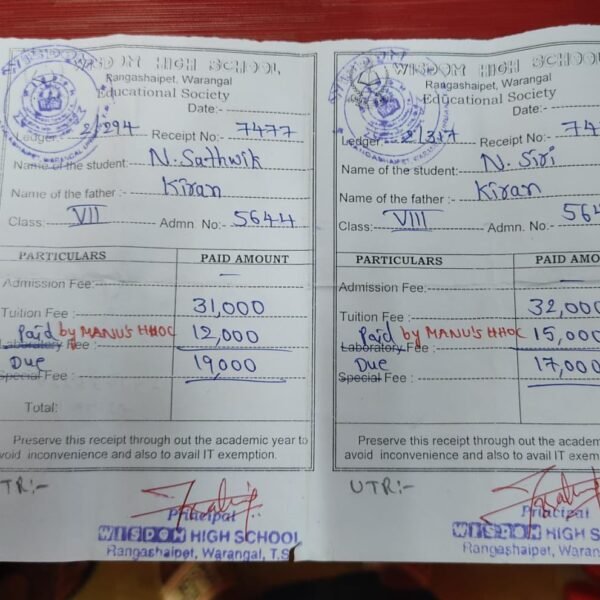 WISDOM HIGH SCHOOL,
Rangashaipet, Warangal
Educational Society
Date:-
Ledger: 2/294 Receipt No:- 7477
Name of the student: N. Sathwik
Name of the father :- Kiran
Class: VII Admn. No:- 5644
PARTICULARS PAID AMOUNT
Admission Fee: —
Tuition Fee : 31,000
Paid by MANU'S HHOC 12,000
Laboratory Fee :
Due 19,000
Special Fee :
Total:
Preserve this receipt through out the academic year to
avoid inconvenience and also to avail IT exemption.
UTR:-
Principal
WISDOM HIGH SCHOOL
Rangashaipet, Warangal, T.S.
WISDOM HIGH SCHOOL
Rangashaipet, Warangal
Educational Society
Date:-
Ledger: 2/317 Receipt No:- 747
Name of the student: N. Siri
Name of the father :- Kiran
Class: VIII Admn. No:- 564
PARTICULARS PAID AMO
Admission Fee: —
Tuition Fee : 32,000
Paid by MANU'S HHOC 15,000
Laboratory Fee :
Due 17,000
Special Fee :
Total:
Preserve this receipt through out the academ
avoid inconvenience and also to avail IT exemp
UTR:-
Principal
WISDOM HIGH S
Rangashaipet, Waran